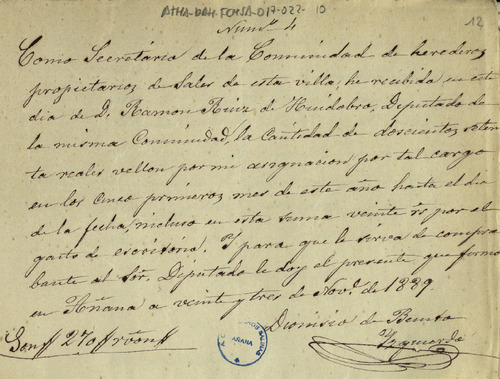 ATHA-DAH-FCHSA-017-022-10
12
Num.º 4
Como Secretario de la Comunidad de herederos
propietarios de Sales de esta villa, he recibido en este
dia de D. Ramon Ruiz de Huidobro, Diputado de
la misma Comunidad, la cantidad de doscientos seten
ta reales vellon por mi asignacion por tal cargo
en los cinco primeros mes de este año hasta el dia
de la fecha, incluso en esta suma veinte rs por el
gasto de escritorio. Y para que le sirva de compro
bante al Sōr. Diputado le doy el presente que firmo
en Añana a veinte y tres de Nov.e de 1839.
Dionisio de Benito
Yzquierdo
Son 270 rōn
AÑANA